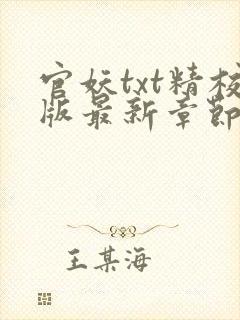 官妖txt精校
版最新章節
王某海